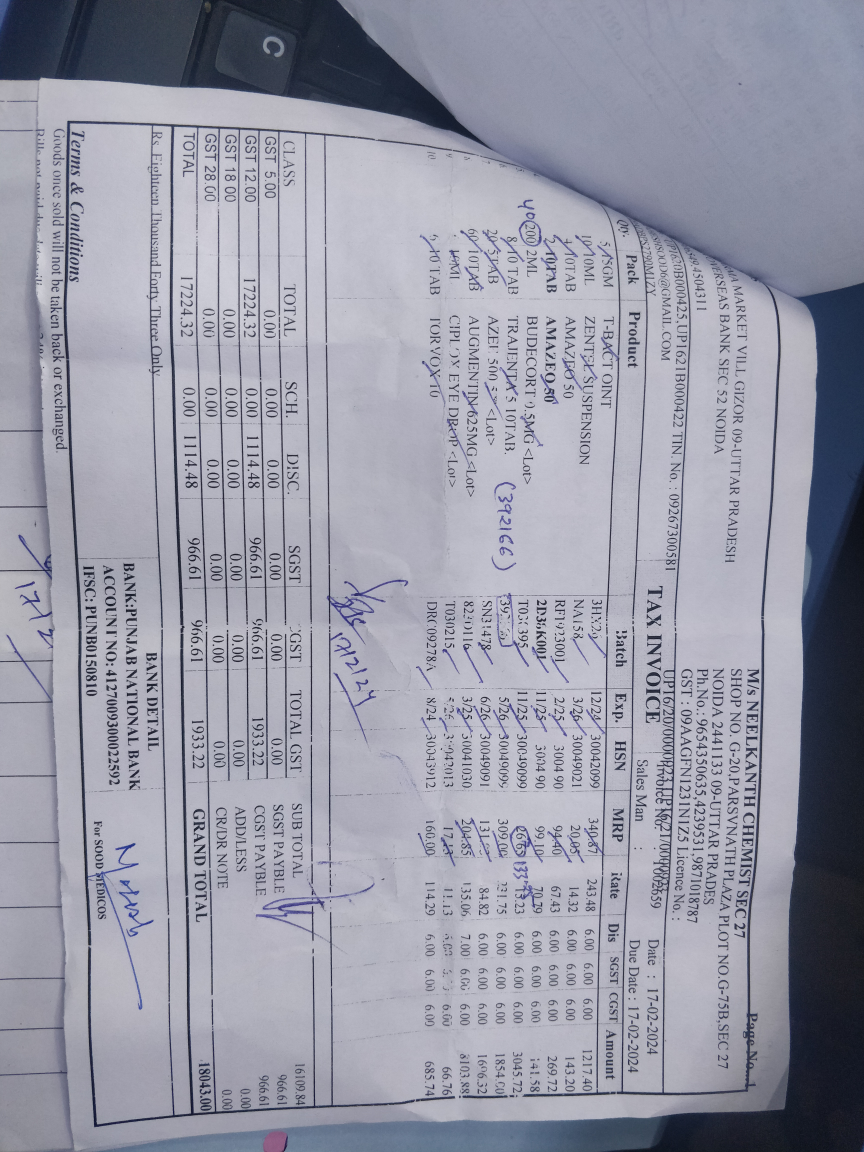 Page No...1
M/s NEELKANTH CHEMIST SEC 27
SHOP NO. G-20,PARSVNATH PLAZA PLOT NO.G-75B,SEC 27
NOIDA 2441133 09-UTTAR PRADES
Ph.No.: 9654350635,4239531,9871018787
GST : 09AAGFN1231N1Z5 Licence No. :
MARKET VILL GIZOR 09-UTTAR PRADESH
OVERSEAS BANK SEC 52 NOIDA
4504311
UP1621B000425,UP1621B000422 TIN. No. : 09267300581
@GMAIL.COM
TAX INVOICE
Invoice No.
Date : 17-02-2024
Sales Man :
Due Date : 17-02-2024
Qty. Pack Product Batch Exp. HSN MRP Rate Dis SGST CGST Amount
5 15GM T-BACT OINT 12/24 30042099 340.87 243.48 6.00 6.00 6.00 1217.40
10ML ZENTEL SUSPENSION NA158 3/26 30049021 20.05 14.32 6.00 6.00 6.00 143.20
10TAB AMAZEO 50 RF1923001 2/25 3004 90 94.40 67.43 6.00 6.00 6.00 269.72
2 10TAB AMAZEO 50 11/25 3004 90 99.10 70.79 6.00 6.00 6.00 141.58
40 200 2ML BUDECORT 0.5MG <Lot> 11/25 30049099 6.00 6.00 6.00 3045.72
8 10 TAB TRAJENTA 5 10TAB. (392166) 5/26 30049099 309.00 231.75 6.00 6.00 6.00 1854.00
20 5TAB AZEE 500 <Lot> SN31478 6/26 30049091 84.82 6.00 6.00 6.00 1696.32
60 10TAB AUGMENTIN 625MG <Lot> 3/25 30041030 204.85 135.06 7.00 6.00 6.00 8103.88
EYE DROP <Lot> T030215 11.13 6.00 66.76
10 TAB TORVOX 10 DRC09278A 8/24 30043912 160.00 114.29 6.00 6.00 6.00 685.74
17/2/24
CLASS TOTAL SCH. DISC. SGST CGST TOTAL GST
GST 5.00 0.00 0.00 0.00 0.00 0.00 0.00
GST 12.00 17224.32 0.00 1114.48 966.61 966.61 1933.22
GST 18.00 0.00 0.00 0.00 0.00 0.00 0.00
GST 28.00 0.00 0.00 0.00 0.00 0.00 0.00
TOTAL 17224.32 0.00 1114.48 966.61 966.61 1933.22
SUB TOTAL 16109.84
SGST PAYBLE 966.61
CGST PAYBLE 966.61
ADD/LESS 0.00
CR/DR NOTE 0.00
GRAND TOTAL 18043.00
Rs. Eighteen Thousand Forty Three Only
Terms & Conditions
Goods once sold will not be taken back or exchanged.
BANK DETAIL
BANK:PUNJAB NATIONAL BANK
ACCOUNT NO: 4127009300022592
IFSC: PUNB0150810
For SOOD MEDICOS
17/2
C